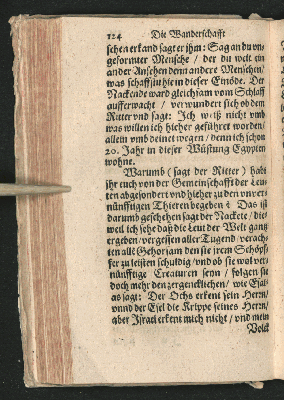 124 Die Wanderschafft
schen erkand sagt er ihm: Sag an du vn-
geformter Mensche / der du weit ein
ander Ansehen denn andere Menschen/
was schaffstu hie in dieser Einöde. Der
Nackende ward gleichsam vom Schlaff
aufferwacht / verwundert sich ob dem
Ritter vnd sagt: Ich weiß nicht vmb
was willen ich hieher geführet worden/
allein vmb deinet wegen / denn ich schon
20. Jahr in dieser Wüstung Egypten
wohne.
Warumb (sagt der Ritter) habt
jhr euch von der Gemeinschafft der Leu-
ten abgesondert vnd hieher zu den vnver-
nünfftigen Thieren begeben? Das ist
darumb geschehen sagt der Nackete / die-
weil ich sehe daß die Leut der Welt gantz
ergeben / vergessen aller Tugend / verach-
ten alle Gehorsam den sie jrem Schöpf-
fer zu leisten schuldig / vnd ob sie wol ver-
nünfftige Creaturen seyn / folgen sie
doch mehr den zergencklichen / wie Esai-
as sagt: Der Ochs erkent sein Herrn/
vnnd der Esel die Krippe seines Herrn/
aber Israel erkent mich nicht / vnd mein
Volck